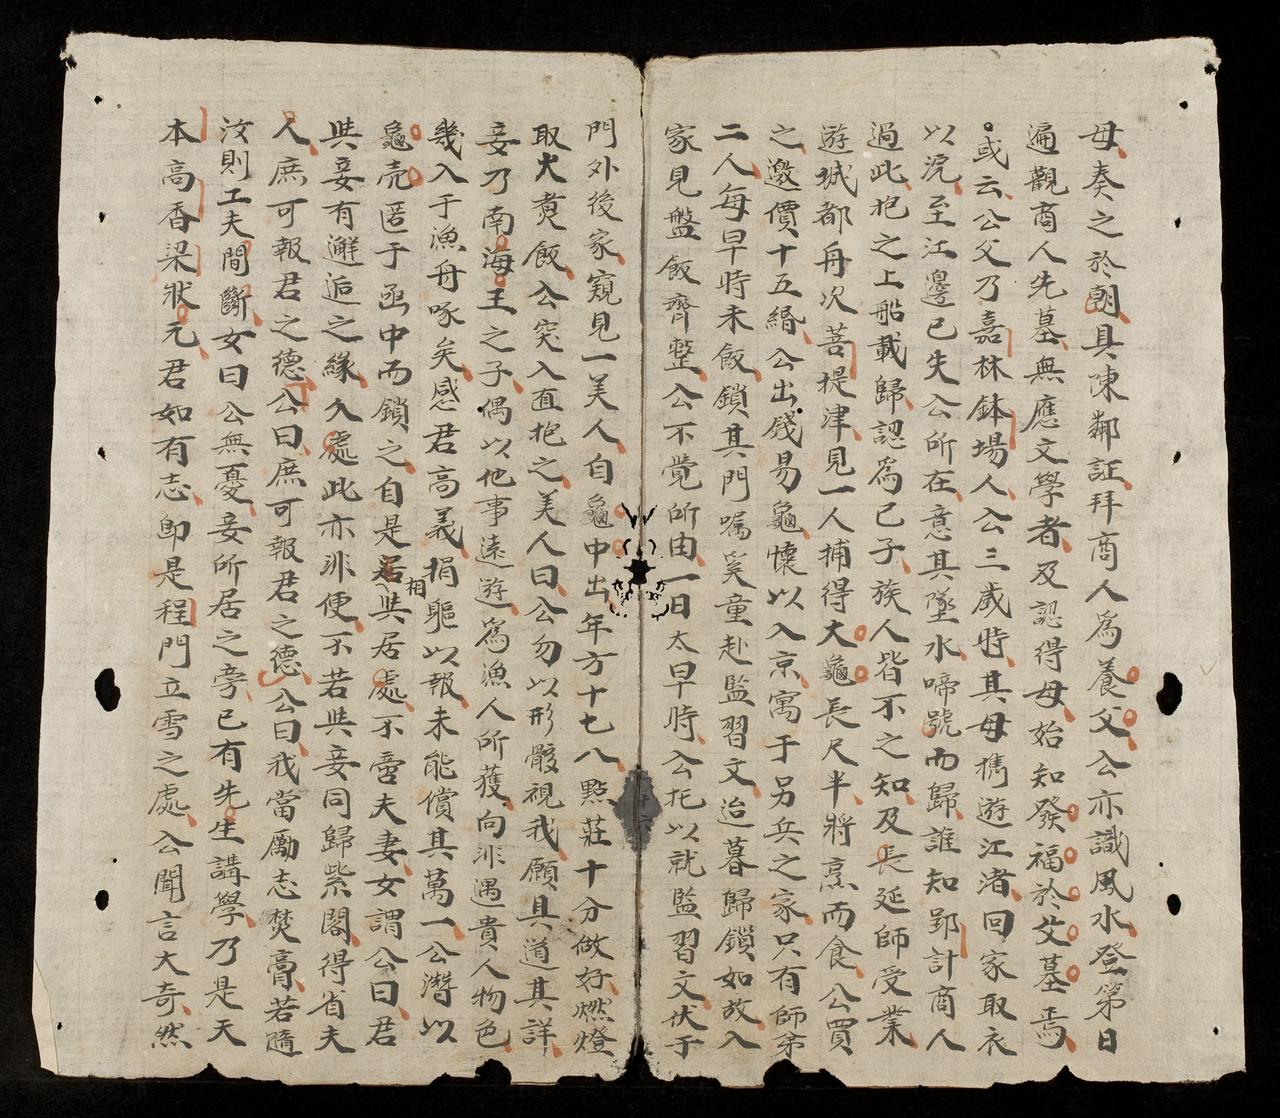 母奏之於朝具陳鄰証拜商人爲養父公亦識風水登第日
遍觀商人先墓無應文學者及認得母始知發福於父墓焉
或云公父乃嘉林鉢場人公三歲時其母携遊江渚回家取衣
以浣至江邊已失公所在意其墜水啼號而歸誰知郢計商人
過此抱之上船載歸認爲己子族人皆不之知及長延師受業
遊城都舟次菩提津見一人捕得大龜長尺半將烹而食公買
之邀價十五緡公出錢易龜懷以入京寓于另兵之家只有師弟
二人每早時未飯鎖其門嘱奚童赴監習文迨暮歸鎖如故入
家見盤飯齊整公不覺所由一日太早時公托以就監習文伏于
門外後家窺見一美人自龜中出年方十七八點莊十分做好燃燈
取火煑飯公突入直抱之美人曰公勿以形骸視我願具道其詳
妾乃南海王之子偶以他事遠遊爲漁人所獲向非遇貴人物色
幾入于漁舟啄矣感君高義捐軀以報未能償其萬一公潛以
龜壳匿于凾中而鎖之自是相与居處不啻夫妻女謂公曰君
与妾有邂逅之緣久處此亦非便不若与妾同歸紫閣得省夫
人庶可報君之德公曰庶可報君之德公曰我當勵志焚膏若隨
汝則工夫間斷女曰公無憂妾所居之旁已有先生講學乃是天
本高香梁狀元君如有志即是程門立雪之處公聞言大奇然